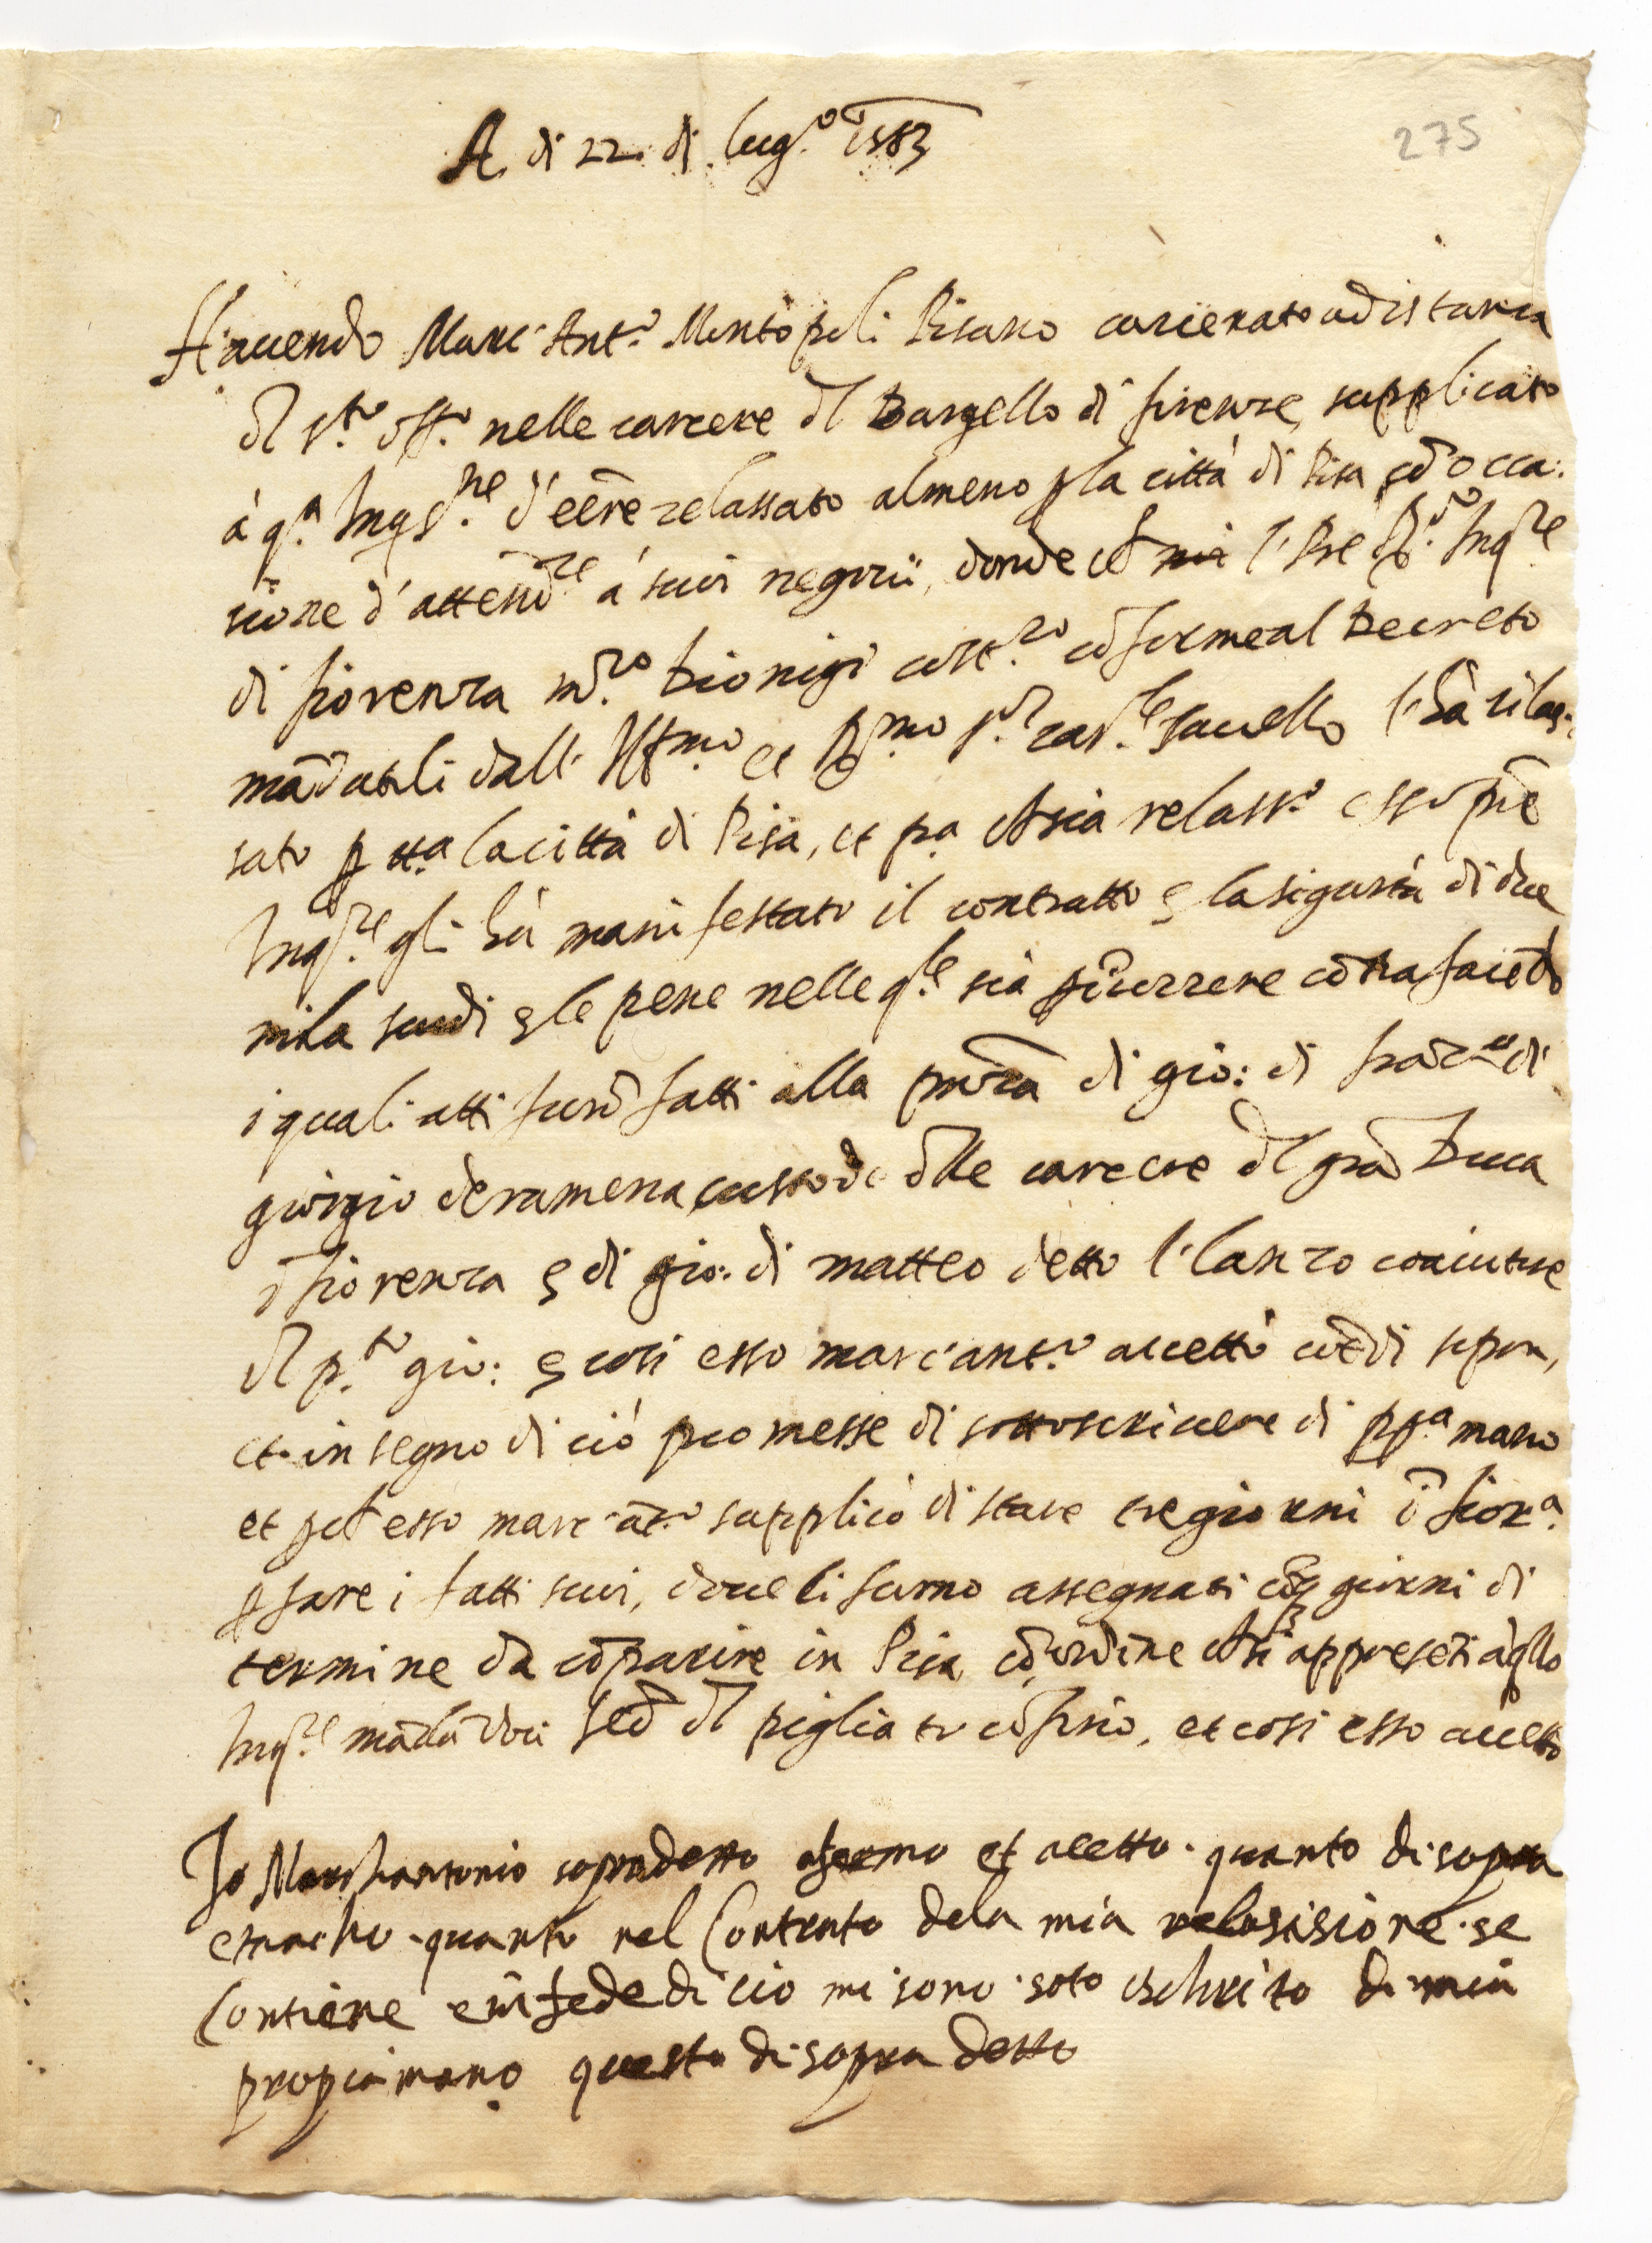 275
A di 22. di lug.º 1583
Havendo Marc'Ant.º Montopoli Pisano carcerato ad istanza
dl s.to off.º nelle carcere dl Bargello di firenze supplicato
à q.a Inqs.ne d'eēre relassato almeno p la città di Pisa cō occa:
sione d'attend.re à suoi negocii, donde ch l Pre R.do Inq.re
di fiorenza m.ro Dionigi cost.ro cōforme al Decreto
mādatoli dall' Ill.mo et R.mo s.r car.le savello l'hà rilas:
sato p tt.a la città di Pisa, et pª ch sia relass.º esso prē
Inq.re gli hà manifestato il contratto e la sigurtà di due
mila scudi e le pene nelle q.le sia p īcorrere cōtrafacēdo
i quali atti furō fatti alla prēza di gio: di frāc.º di
giorgio custode dlle carcere dl grā Duca
ī fiorenza e di gio: di matteo detto l'lanzo coaiutore
dl p.to gio: e così esso marc'ant.º accettò cōe di sopra,
et in segno di ciò promesse di sottoscrivere di pp.a mano
et p ch esso marc'āt.º supplicò di stare tre giorni ī fior.a
p fare i fatti suoi, dove li furno assegnati giorni di
termine da cōparire in Pisa cō ordine ch si appresēti à qllo
Inq.re dl pigliato cōfino, et così esso accettò
Io Marchantonio sopradetto afermo et acetto quanto di sopra
quanto nel Contrato dela mia relasisione se
Contiene e in fede di cio mi sono soto ischrito di mia
propia mano questo di sopra detto